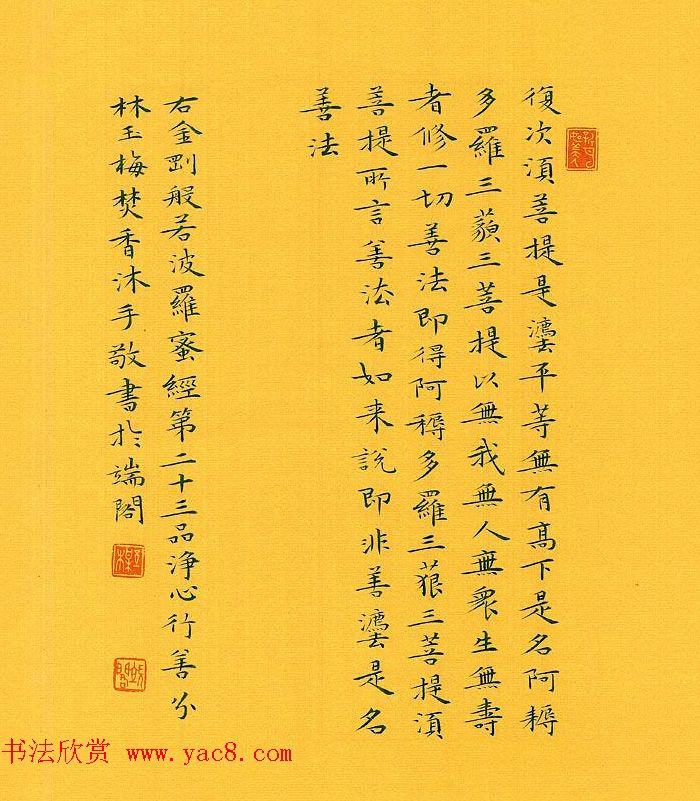 復次須菩提是灋平等無有髙下是名阿耨
多羅三藐三菩提以無我無人無衆生無壽
者修一切善法即得阿耨多羅三藐三菩提須
菩提所言善法者如来說即非善灋是名
善法
右金剛般若波羅蜜經第二十三品淨心行善分
林玉梅焚香沐手敬書於端閣
书法欣赏 www.yac8.com